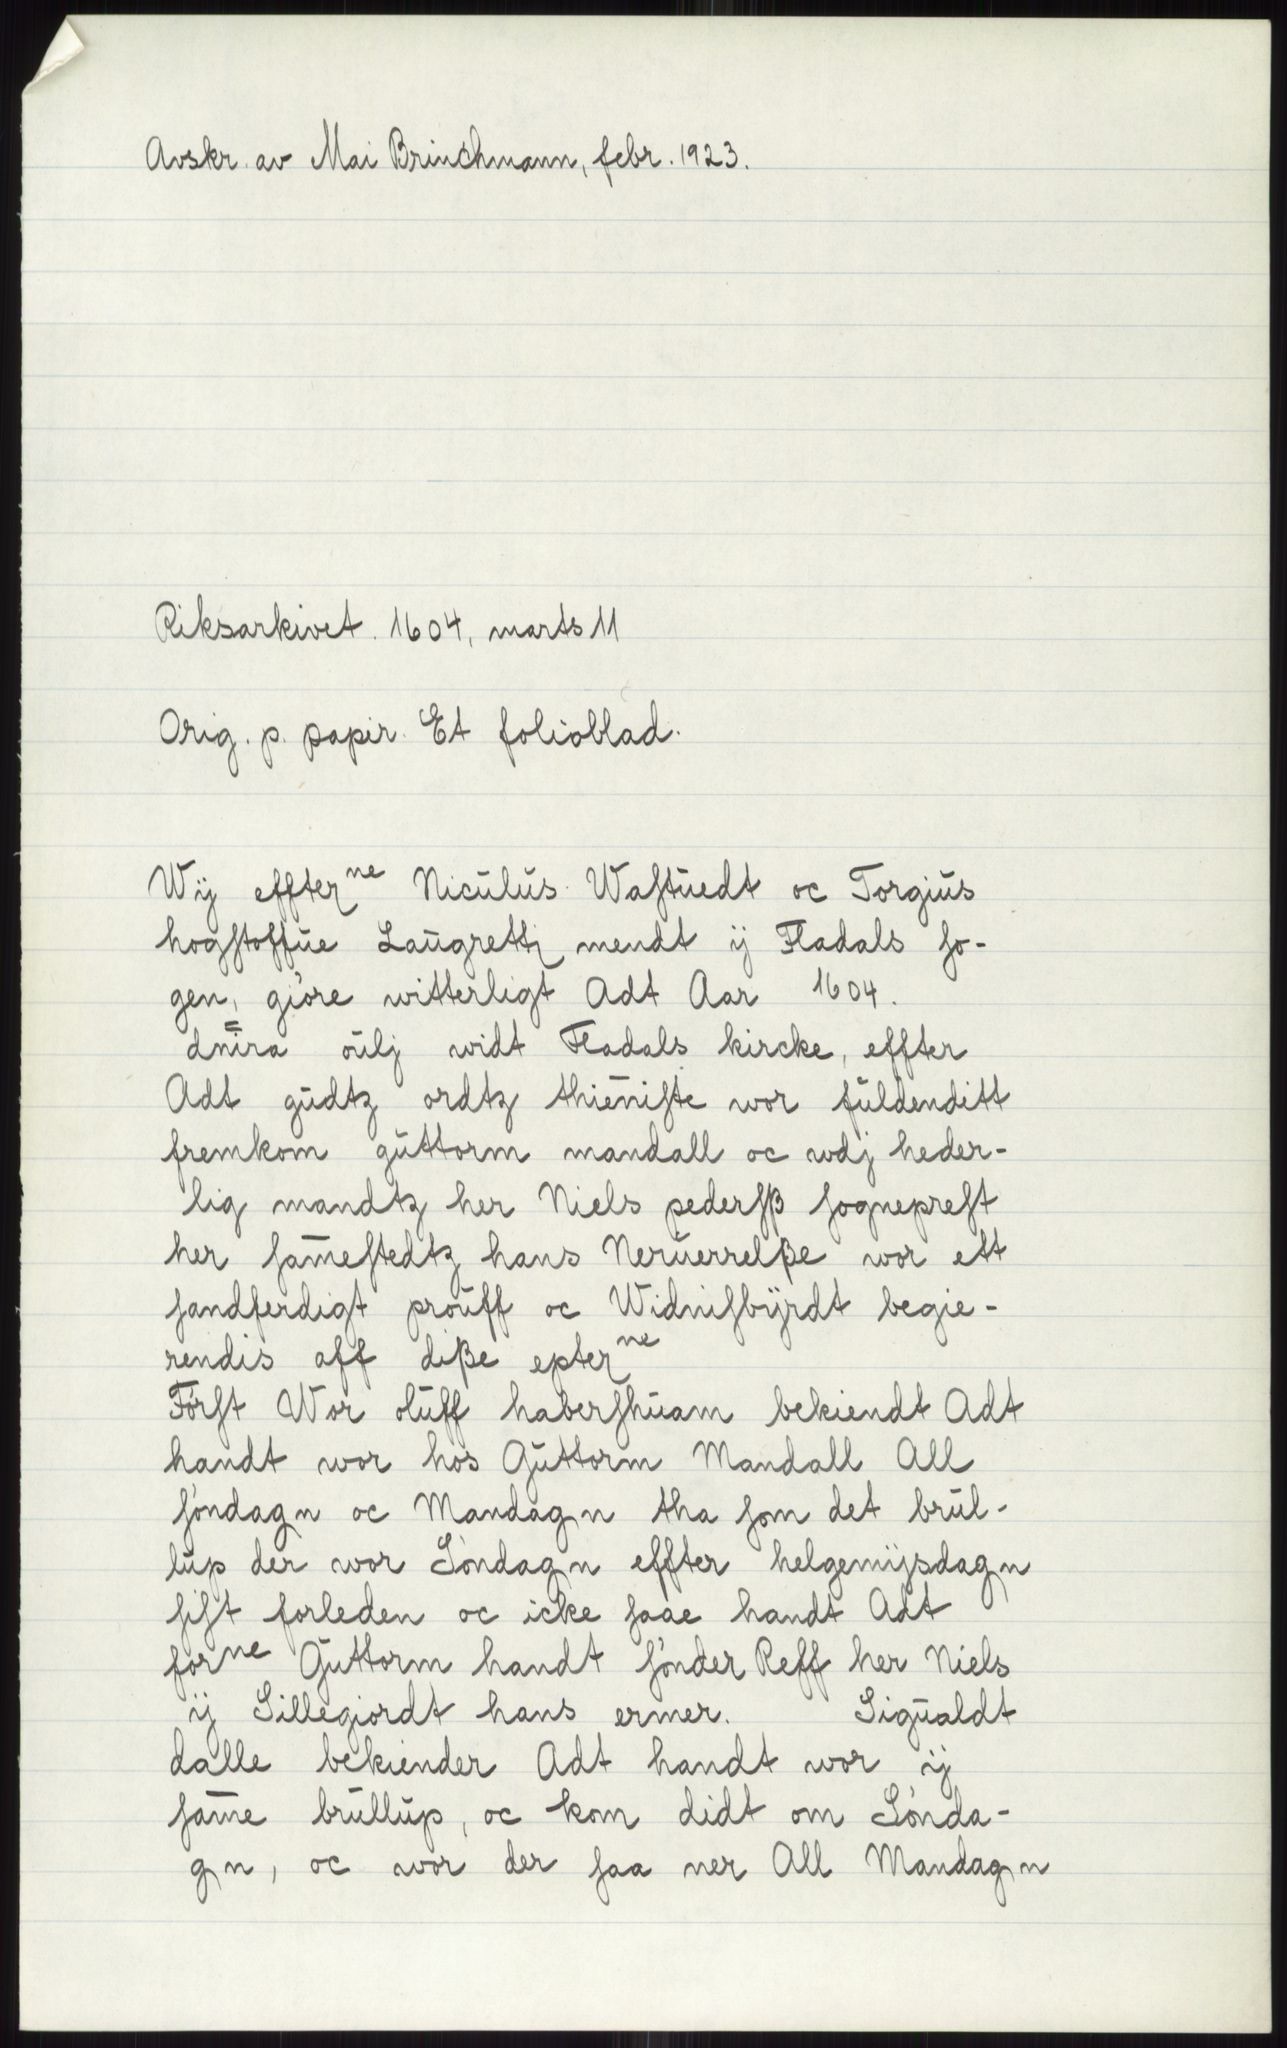 Avskr. av Mai Brinchmann, febr. 1923.
Riksarkivet. 1604, marts 11
Orig. p. papir. Et folioblad.
Wÿ effterⁿᵉ Niculus Waſtuedt oc Torgius
hogſtoffue Laugrettz mendt ÿ Fladals ſo-
gen, giøre witterligt Adt Aar 1604.
dnira oulj widt Fladals kircke, effter
Adt gudtz ordtz thieniſte wor fuldenditt
fremkom guttorm mandall oc wdj heder-
lig mandtz her Niels pederſß ſogneprest
her ſam̄eſtedtz hans Neruerrelße wor ett
ſandferdigt prouff oc Widniſbÿrdt begie-
rendis aff diße epterⁿᵉ
Førſt Wor oluff haberſhuam bekiendt Adt
handt wor hos Guttorm Mandall All
ſøndagn oc Mandagn tha ſom det brul-
lup der wor Søndagn effter helgemijsdagn
ſiſt forleden oc icke ſaae handt Adt
forⁿᵉ Guttorm handt ſønder Reff her Niels
ÿ Sillegiordt hans ermer. Sigualdt
dalle bekiender Adt handt wor ÿ
ſam̄e brullup, oc kom didt om Sønda-
gn, oc wor der ſaa ner All Mandagn